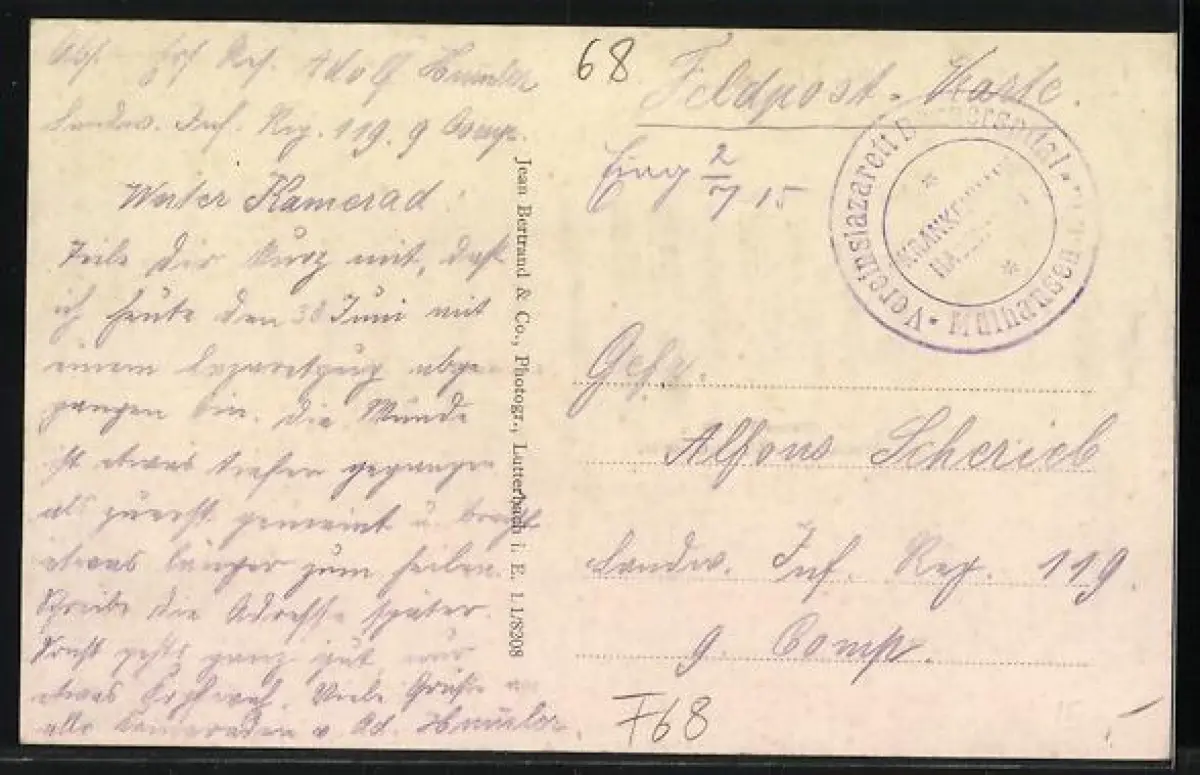 Abs. Ers. Res. Adolf
Landw. Inf. Reg. 119. 9 Comp.
Werter Kamerad!
Teile dir kurz mit, daß
ich heute den 30 Juni mit
einem Lazarettzug abge-
gangen bin. Die Wunde
ist etwas tiefer gegangen
als zuerst gemeint u. braucht
etwas länger zum heilen.
Schreibe die Adresse später.
Sonst gehts ganz gut, nur
etwas Kopfweh. Viele Grüße an
alle Kameraden v. Ad.
Jean Bertrand & Co., Photogr., Lutterbach i. E. 1 1/8208
68
Feldpost-Karte.
Eing 2/7 15
Vereinslazarett
Gefr.
Alfons Scherieb
Landw. Inf. Reg. 119.
9. Comp.
F68